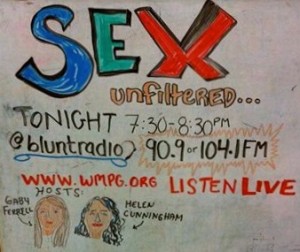 SEX
unfiltered...
TONIGHT 7:30-8:30PM
@bluntradio 90.9 or 104.1FM
WWW.WMPG.ORG LISTEN LIVE
HOSTS:
GABY FERRELL
HELEN CUNNINGHAM